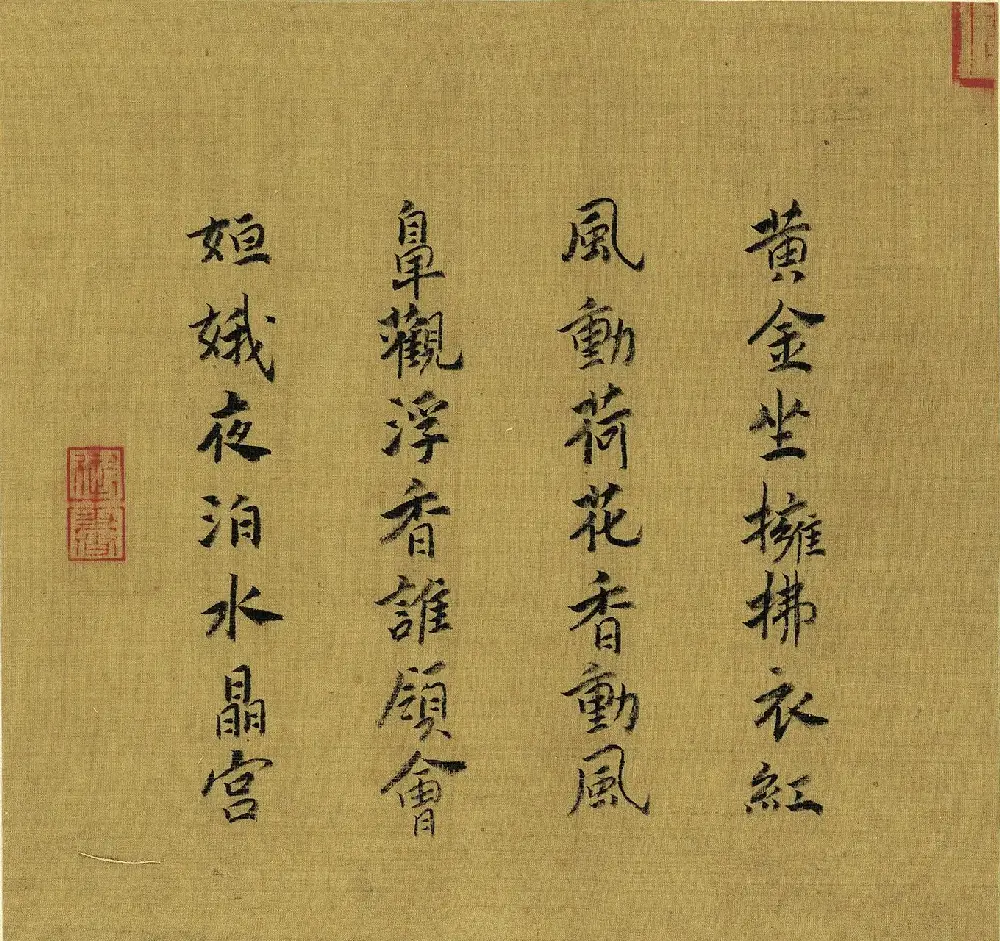 黄金坐擁拂衣紅
風動荷花香動風
鼻觀浮香誰領會
姮娥夜泊水晶宮
御書